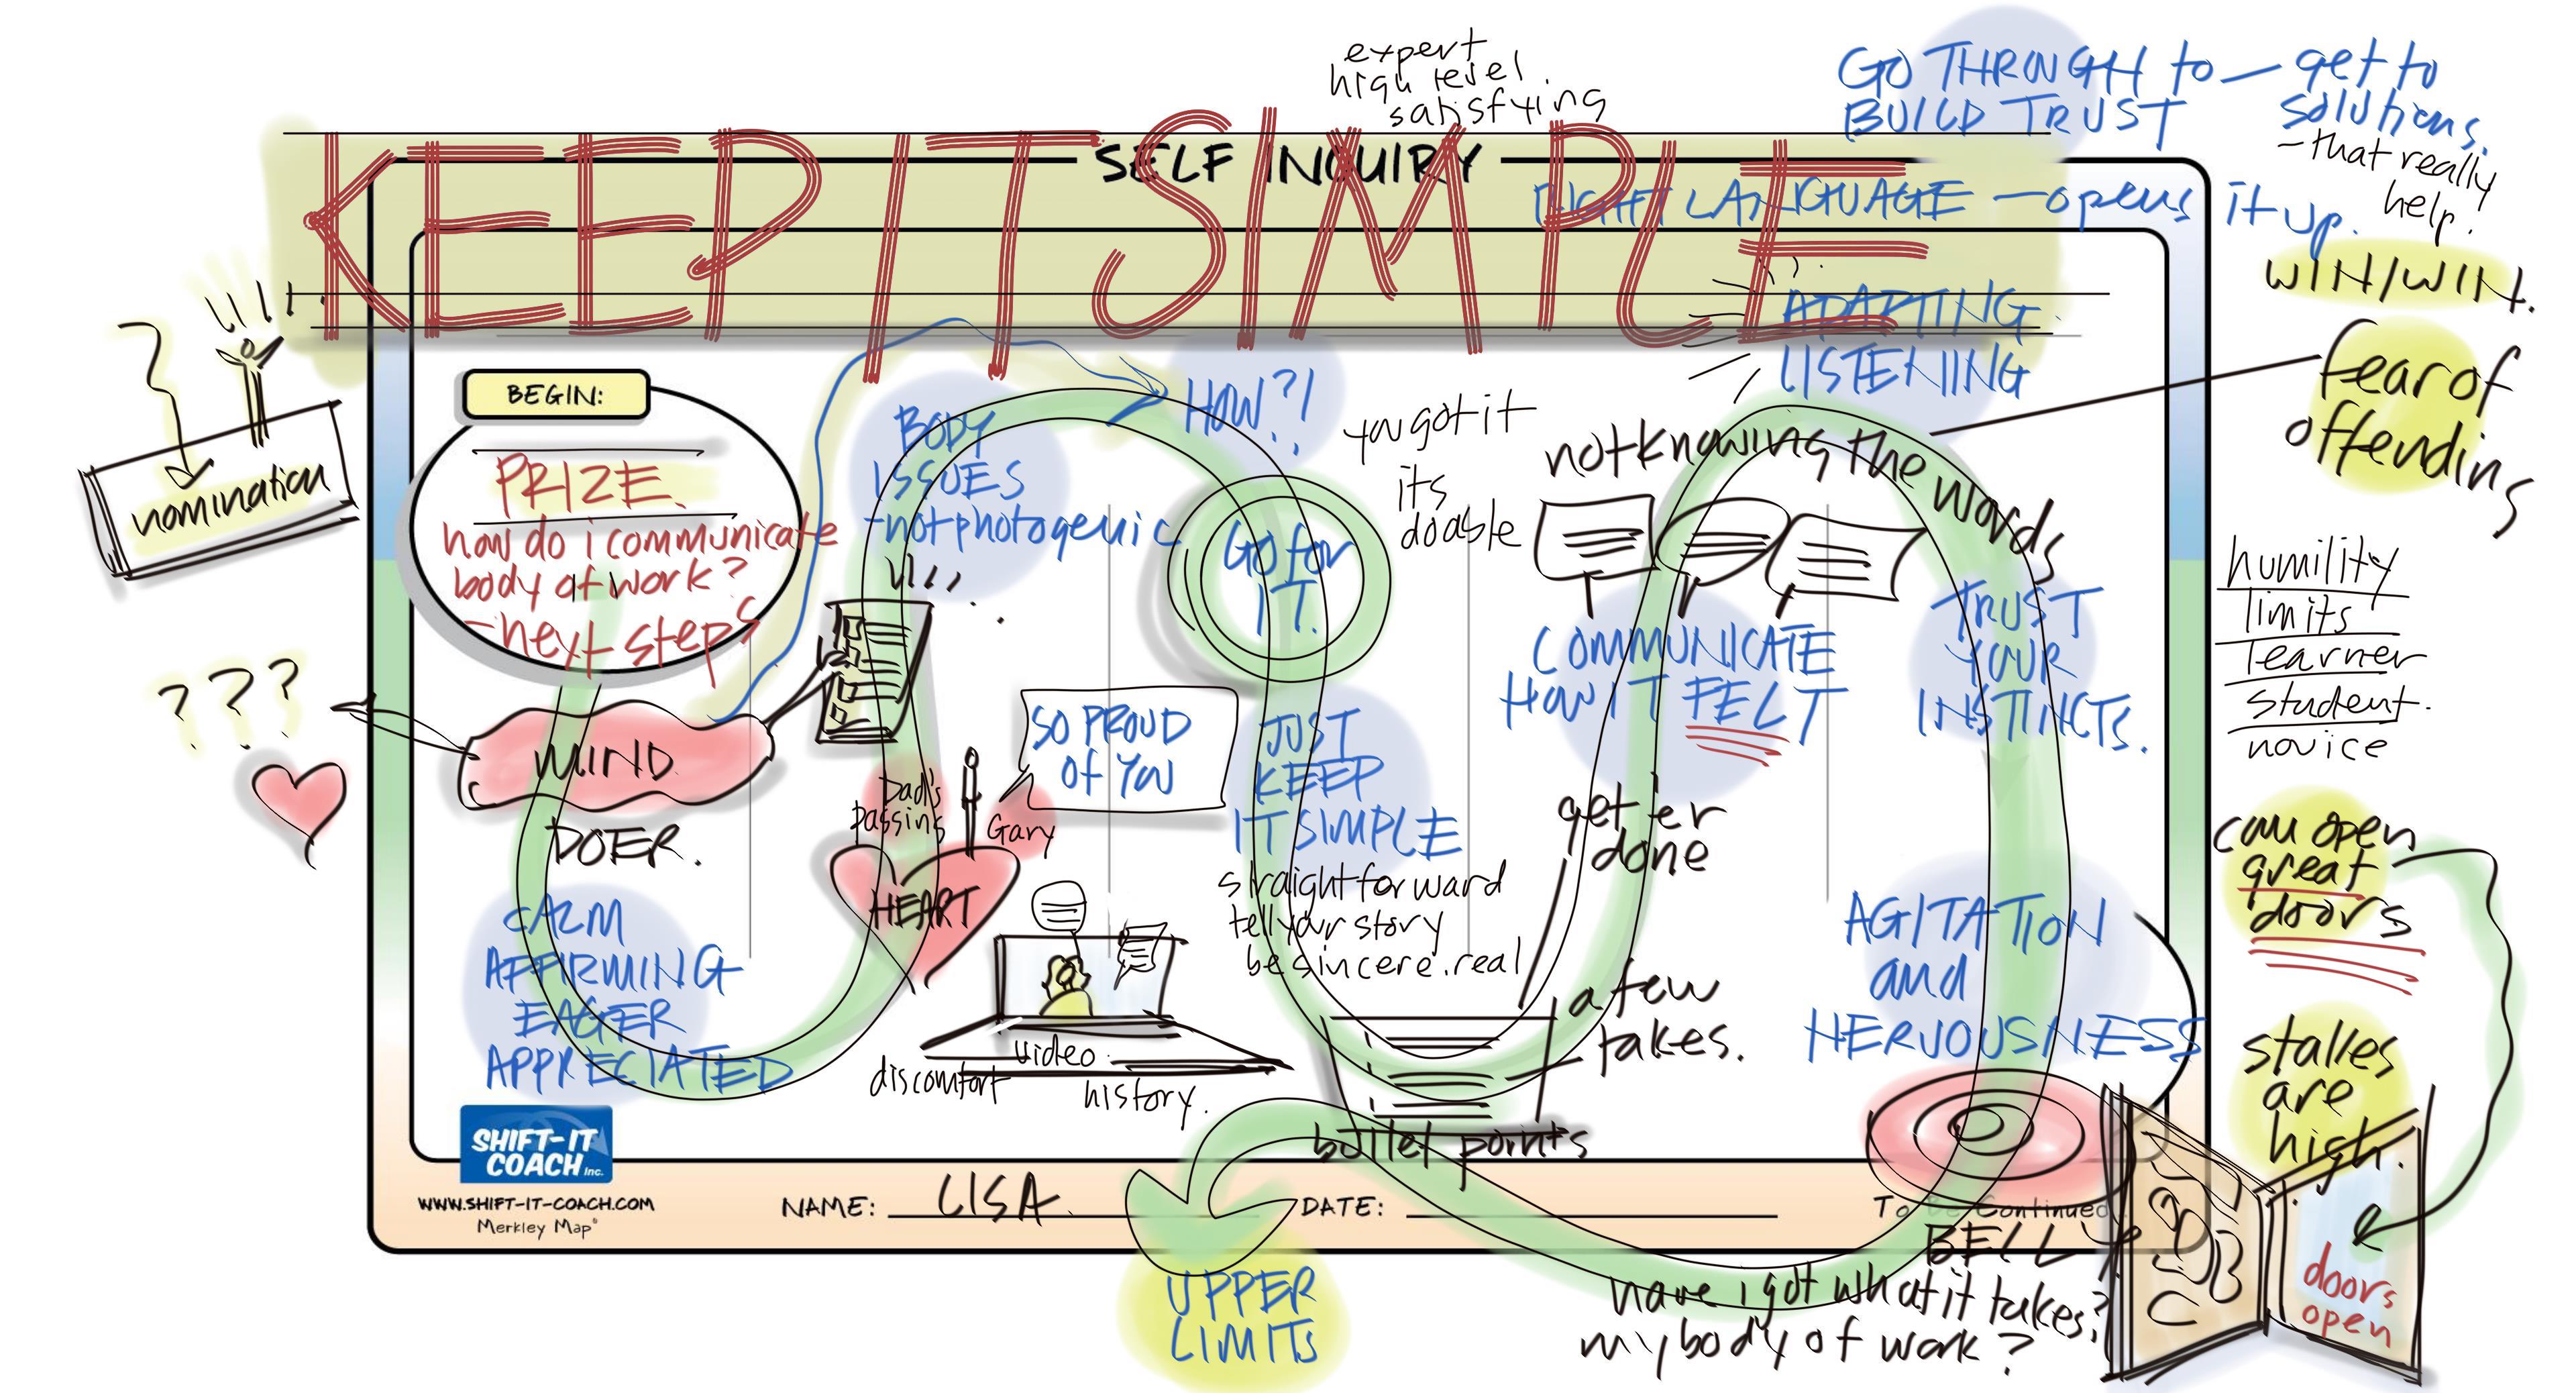 expert
high level.
satisfying
GO THROUGH to — get to
BUILD TRUST
solutions.
- that really
help!
SELF INQUIRY
KEEP IT SIMPLE
RIGHT LANGUAGE — opens it up.
WIN/WIN.
ADAPTING
LISTENING
fear of
offending
nomination
BEGIN:
PRIZE.
how do i communicate
body of work?
- next steps
BODY
ISSUES
- not photogenic
HOW?!
you got it
its
doable
GO for
IT.
not knowing the words
humility
limits
learner
student.
novice
COMMUNICATE
HOW IT FELT
TRUST
YOUR
INSTINCTS.
???
MIND
DOER.
CALM
AFFIRMING
EAGER
APPRECIATED
Dad's
passing
Gary
HEART
SO PROUD
Of YOU
JUST
KEEP
IT SIMPLE
straight forward
tell your story
be sincere. real
get 'er
done
a few
takes.
can open
great
doors
AGITATION
and
NERVOUSNESS
stakes
are
high.
video
discomfort
history.
bullet points
SHIFT-IT
COACH Inc.
WWW.SHIFT-IT-COACH.COM
Merkley Map®
NAME: LISA
DATE:
To Be Continued
BELL
have i got what it takes?
my body of work?
UPPER
LIMITS
doors
open